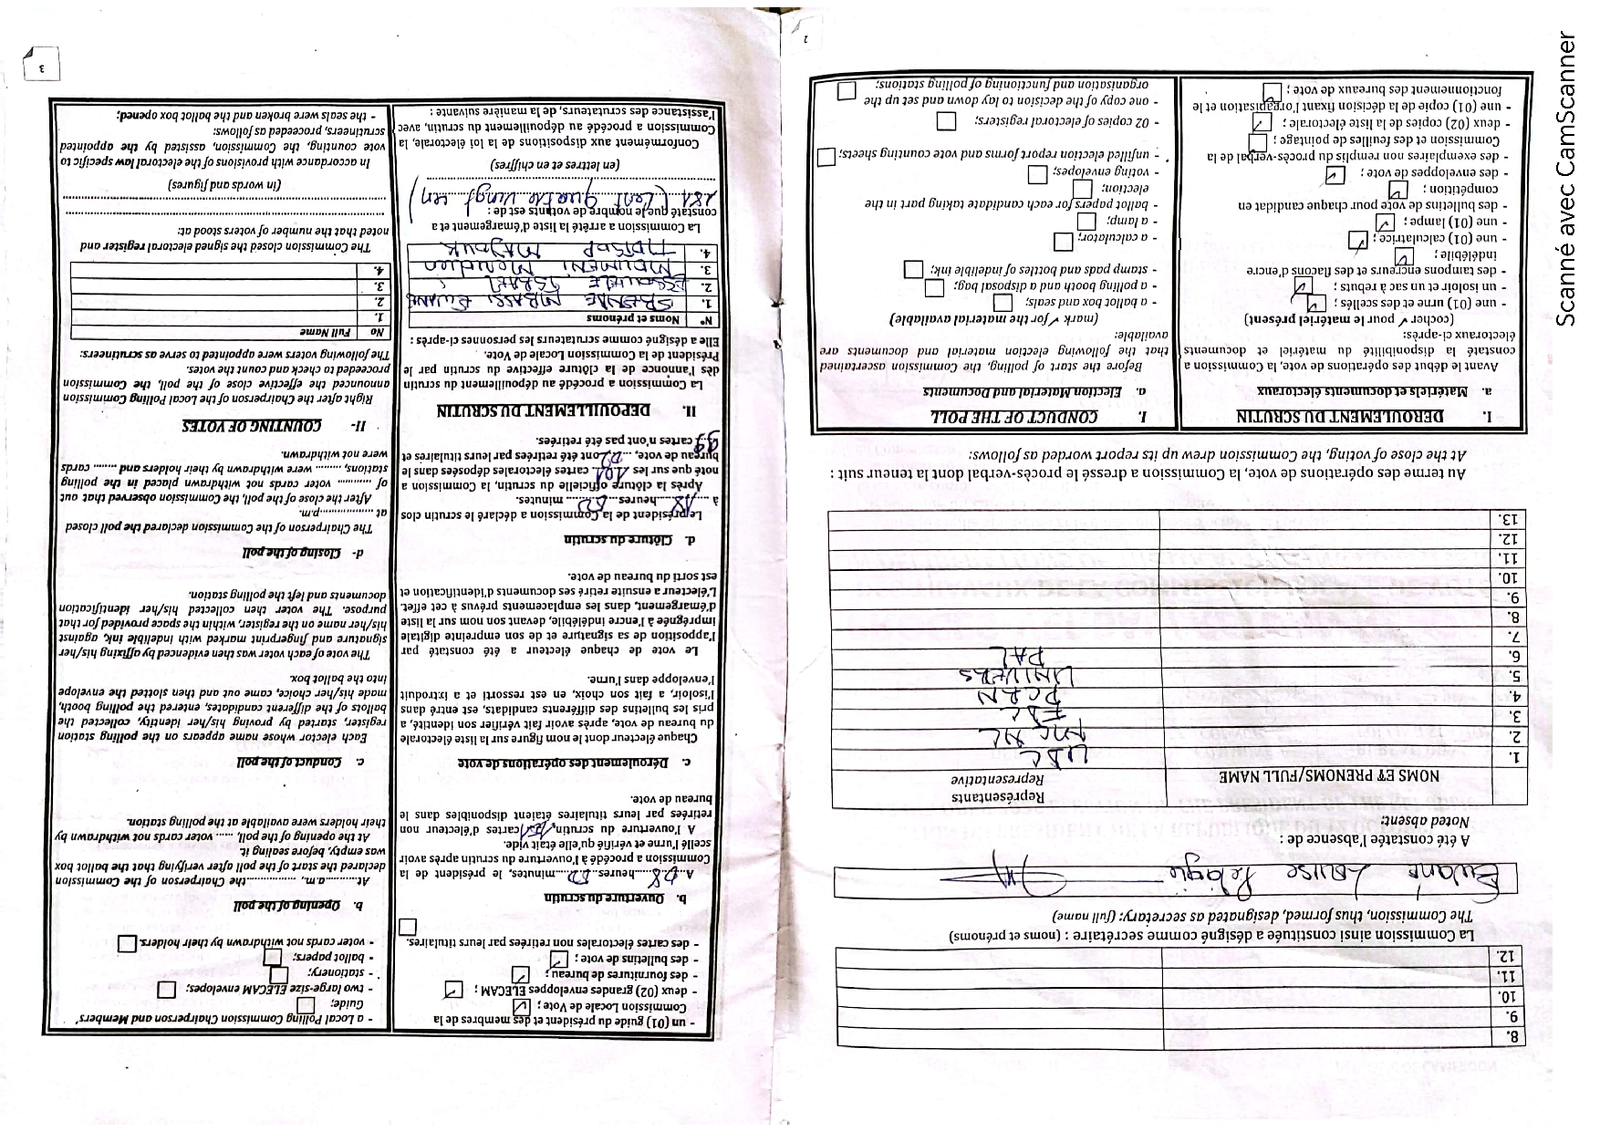 8.
9.
10.
11.
12.
La Commission ainsi constituée a désigné comme secrétaire : (noms et prénoms)
The Commission, thus formed, designated as secretary: (full name)
Ewané Louise Pelagie
A été constatée l'absence de :
Noted absent:
NOMS ET PRENOMS/FULL NAME
Représentants
Representative
1. UDC
2.
3.
4. PCRN
5. UNIVERS
6. PAL
7.
8.
9.
10.
11.
12.
13.
Au terme des opérations de vote, la Commission a dressé le procès-verbal dont la teneur suit :
At the close of voting, the Commission drew up its report worded as follows:
I. DEROULEMENT DU SCRUTIN
a. Matériels et documents électoraux
Avant le début des opérations de vote, la Commission a
constaté la disponibilité du matériel et documents
électoraux ci-après:
(cocher ✓ pour le matériel présent)
- une (01) urne et des scellés ;
- un isoloir et un sac à rebuts ;
- des tampons encreurs et des flacons d'encre
indélébile ;
- une (01) calculatrice ;
- une (01) lampe ;
- des bulletins de vote pour chaque candidat en
compétition ;
- des enveloppes de vote ;
- des exemplaires non remplis du procès-verbal de la
Commission et des feuilles de pointage ;
- deux (02) copies de la liste électorale ;
- une (01) copie de la décision fixant l'organisation et le
fonctionnement des bureaux de vote ;
I. CONDUCT OF THE POLL
a. Election Material and Documents
Before the start of polling, the Commission ascertained
that the following election material and documents are
available:
(mark ✓ for the material available)
- a ballot box and seals;
- a polling booth and a disposal bag;
- stamp pads and bottles of indelible ink;
- a calculator;
- a lamp;
- ballot papers for each candidate taking part in the
election;
- voting envelopes;
- unfilled election report forms and vote counting sheets;
- 02 copies of electoral registers;
- one copy of the decision to lay down and set up the
organisation and functioning of polling stations;
2
- un (01) guide du président et des membres de la
Commission Locale de Vote ;
- deux (02) grandes enveloppes ELECAM ;
- des fournitures de bureau ;
- des bulletins de vote ;
- des cartes électorales non retirées par leurs titulaires.
b. Ouverture du scrutin
A 08 heures 00 minutes, le président de la
Commission a procédé à l'ouverture du scrutin après avoir
scellé l'urne et vérifié qu'elle était vide.
A l'ouverture du scrutin, cartes d'électeur non
retirées par leurs titulaires étaient disponibles dans le
bureau de vote.
c. Déroulement des opérations de vote
Chaque électeur dont le nom figure sur la liste électorale
du bureau de vote, après avoir fait vérifier son identité, a
pris les bulletins des différents candidats, est entré dans
l'isoloir, a fait son choix, en est ressorti et a introduit
l'enveloppe dans l'urne.
Le vote de chaque électeur a été constaté par
l'apposition de sa signature et de son empreinte digitale
imprégnée à l'encre indélébile, devant son nom sur la liste
d'émargement, dans les emplacements prévus à cet effet.
L'électeur a ensuite retiré ses documents d'identification et
est sorti du bureau de vote.
d. Clôture du scrutin
Le président de la Commission a déclaré le scrutin clos
à 18 heures 00 minutes.
Après la clôture officielle du scrutin, la Commission a
noté que sur les 101 cartes électorales déposées dans le
bureau de vote, 02 ont été retirées par leurs titulaires et
99 cartes n'ont pas été retirées.
II. DEPOUILLEMENT DU SCRUTIN
La Commission a procédé au dépouillement du scrutin
dès l'annonce de la clôture effective du scrutin par le
Président de la Commission Locale de Vote.
Elle a désigné comme scrutateurs les personnes ci-après :
N° Noms et prénoms
1. MBASSI EWANE
2. ISRAEL
3. MOUMENI
4. MAJOUK
La Commission a arrêté la liste d'émargement et a
constaté que le nombre de votants est de :
181 (cent quatre vingt un)
(en lettres et en chiffres)
Conformément aux dispositions de la loi électorale, la
Commission a procédé au dépouillement du scrutin, avec
l'assistance des scrutateurs, de la manière suivante :
- a Local Polling Commission Chairperson and Members'
Guide;
- two large-size ELECAM envelopes;
- stationery;
- ballot papers;
- voter cards not withdrawn by their holders.
b. Opening of the poll
At..........a.m, ..............the Chairperson of the Commission
declared the start of the poll after verifying that the ballot box
was empty, before sealing it.
At the opening of the poll, ...... voter cards not withdrawn by
their holders were available at the polling station.
c. Conduct of the poll
Each elector whose name appears on the polling station
register, started by proving his/her identity, collected the
ballots of the different candidates, entered the polling booth,
made his/her choice, came out and then slotted the envelope
into the ballot box.
The vote of each voter was then evidenced by affixing his/her
signature and fingerprint marked with indelible ink, against
his/her name on the register, within the space provided for that
purpose. The voter then collected his/her identification
documents and left the polling station.
d- Closing of the poll
The Chairperson of the Commission declared the poll closed
at ..................p.m.
After the close of the poll, the Commission observed that out
of .......... voter cards not withdrawn placed in the polling
stations, ........ were withdrawn by their holders and ....... cards
were not withdrawn.
II- COUNTING OF VOTES
Right after the Chairperson of the Local Polling Commission
announced the effective close of the poll, the Commission
proceeded to check and count the votes.
The following voters were appointed to serve as scrutineers:
No Full Name
1.
2.
3.
4.
The Commission closed the signed electoral register and
noted that the number of voters stood at:
(in words and figures)
In accordance with provisions of the electoral law specific to
vote counting, the Commission, assisted by the appointed
scrutineers, proceeded as follows:
- the seals were broken and the ballot box opened;
3
Scanné avec CamScanner